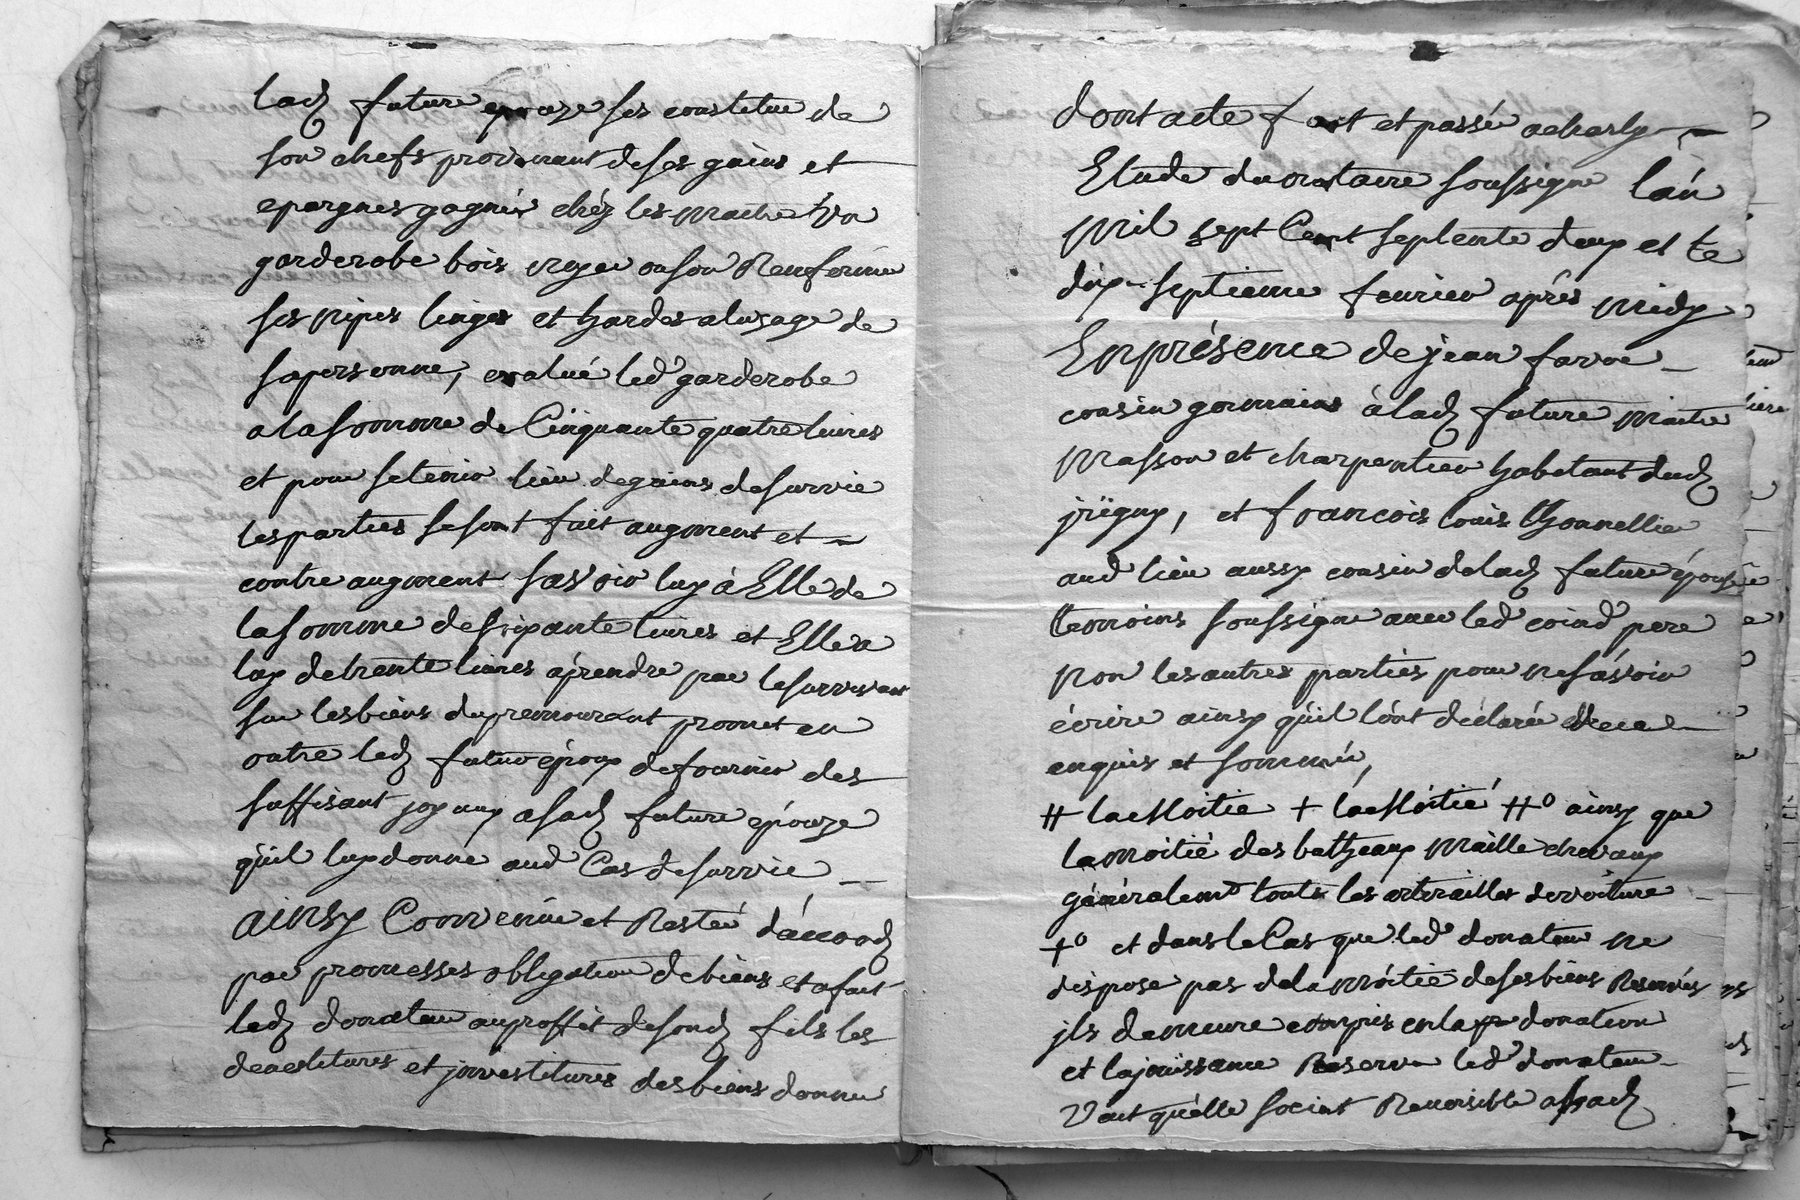 lad future epouse ses constitue de
son chefs provenant de ses gains et
epargnes gagnés chéz les maitre Une
garderobe bois noyer ou son Renfermé
ses nipes linges et hardes alusage de
sapersonne, evalué led garderobe
alasomme de Cinquante quatre livres
et pour setenir lieu degains desurvie
lesparties sesont fait augment et
contre augment sasvoir luy à Elle de
lasomme desoixante livres et Elle a
luy detrente livres aprendre par lesurvivant
sur lesbiens dupremourant promet en
outre led futur époux defournir des
suffisant joyaux asad future épouze
qúil luy donne aud Cas desurvie
ainsy Convenûe et Resté d'accord
par promesses obligation debiens et afait
led donateur auproffit desond fils les
devestitures et jnvestitures desbiens donné
dont acte fait et passé acharly
Etude dunotaire soussigne lán
mil sept Cent septente deux et le
dix-septieme feurier aprés midy
Enprésence de jean favre
cousin germains à lad future maitre
masson et charpentier habitant dud
jrigny, et francois louis thonnellier
aud lieu aussy cousin delad future épousée
temoins soussigne avec led coind pere
non lesautres parties pour nesávoir
écrire ainsy qúil lónt déclarée de ce
enquis et sommé,
# lamoitie + lamóitié #o ainsy que
lamoitié des batheaux maille chevaux
généralemt touts les attrailles devoiture
+o et dans le Cas que led donateur ne
dispose pas dela móitié desesbiens Reservés
jls demeure compris enla donation
et lajouissance Reserve led donateur
Veut quélle soient Reversible asad